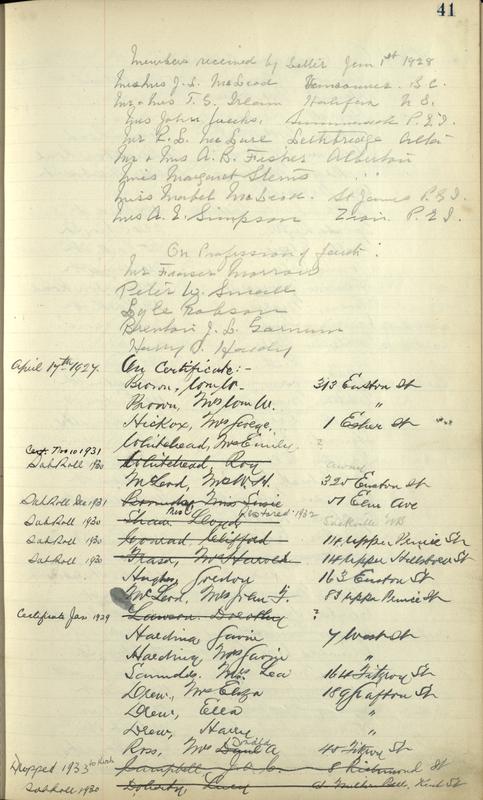 41
Members received by Letter Jan 1st 1928
J. S. McLeod Vancouver. B.C.
Mr & Mrs T. S. Halifax N.S.
Mrs John Summerside P.E.I.
Mr R. L. McLure Lethbridge Alta
Mr & Mrs A. B. Fisher Alberton
Miss Margaret Sterns " "
Miss Mabel McLeod. St James P.E.I.
Mrs A. E. Simpson Zion P.E.I.
On Profession of Faith:
Mr Fraser Morrow
Peter W. Small
Lyle Robson
Brenton J. L.
Harry P.
April 17th 1927 On Certificate:-
Brown, Tom W. 313 Euston St
Brown, Mrs Tom W. "
Hickox, Mrs George, 1 Esher St
Whitehead, Mrs Emily ?
Cert. Nov 10 1931
Sab Roll 1930 Whitehead, Roy away
McLeod, Mrs W. H. 320 Euston St
Sab Roll Dec 1931 Miss Susie 51 Elm Ave
Sab Roll 1930 Shaw Lloyd Restored 1932 Sackville NB
Sab Roll 1930 Conrad Clifford 114 Upper Prince St
Sab Roll 1930 Fraser, Mrs Harold 14 Upper Hillsboro St
Hughes, Gordon 163 Euston St
McLeod, Mrs Jean F. 83 Upper Prince St
Certificate Jan 1929 Lawson Dorothy ?
Harding Gavin 7 West St
Harding Mrs Gavin "
Saunders, Mrs. Lea 164 Fitzroy St
Drew, Mrs Eliza 189 Grafton St
Drew, Ella "
Drew, Harry "
Ross, Mrs Donald A 40 Fitzroy St
Dropped 1933 Campbell, J. A. C. 8 Richmond St
Sab Roll 1930 Doherty, Kent St